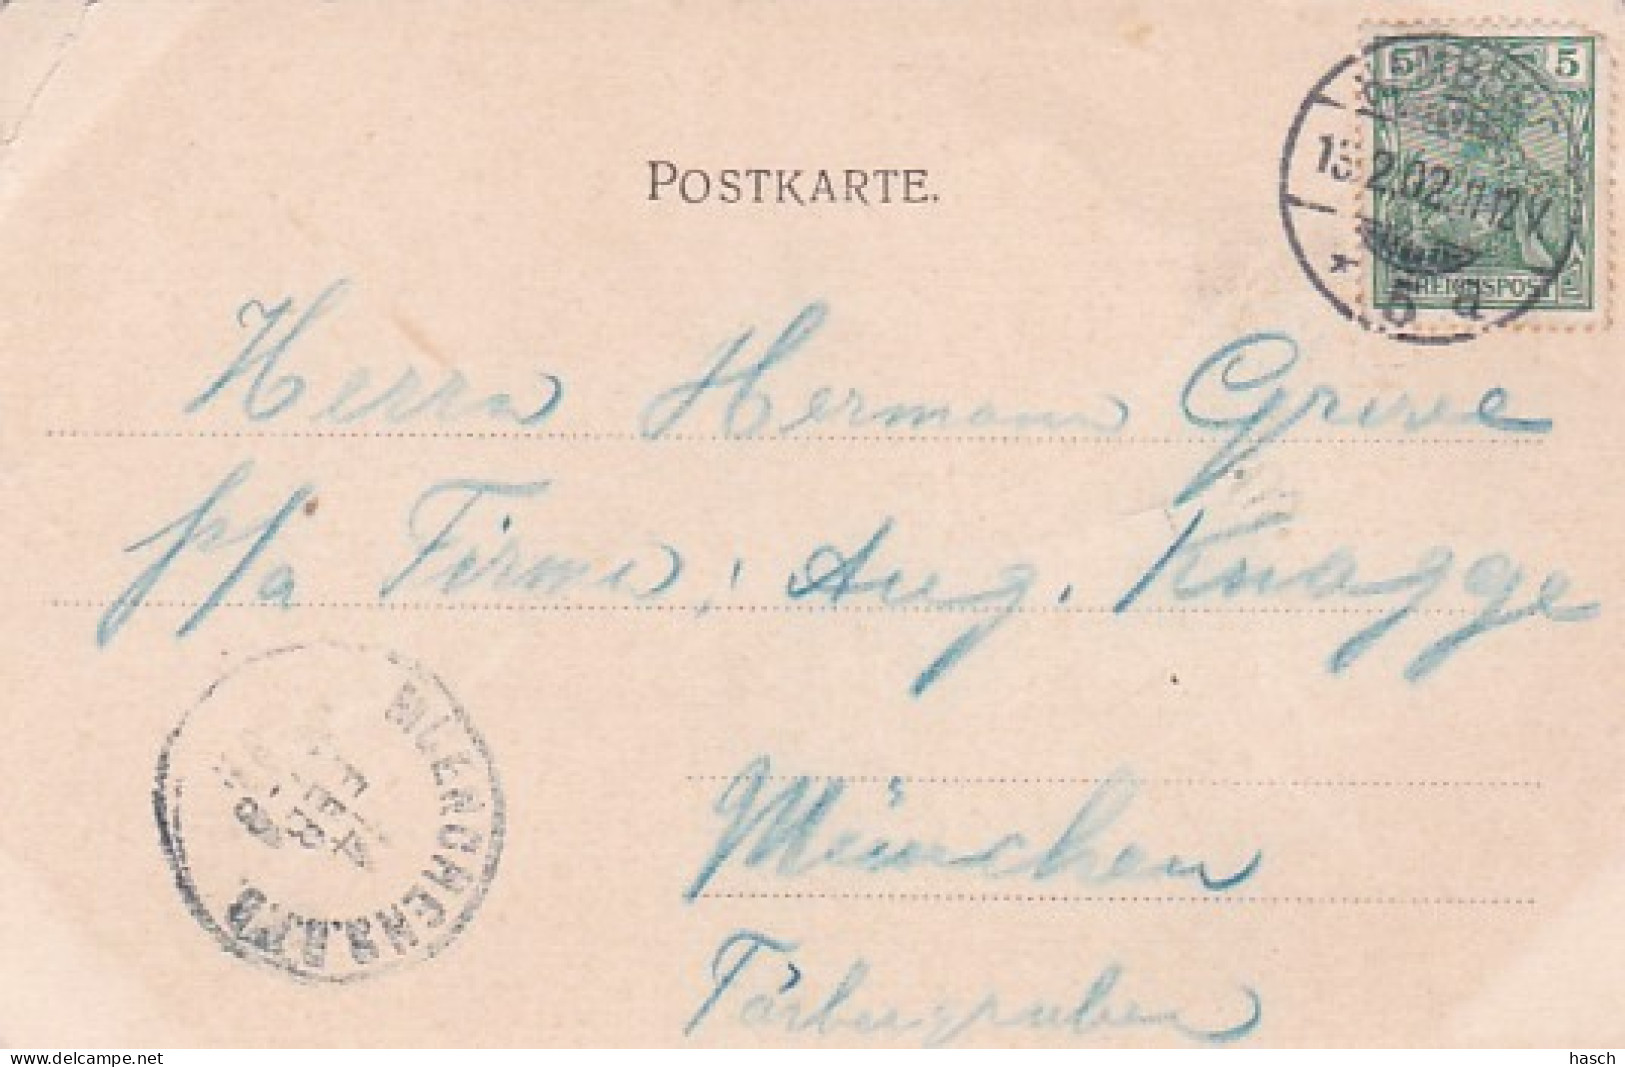 5 5
POSTKARTE.
2.02. 11-12 V.
* 5 d
REICHSPOST
Herrn Hermann Greve
p/a Firma, Aug. Knagge
München
Färbergraben
MUENCHEN
www.delcampe.net
hasch